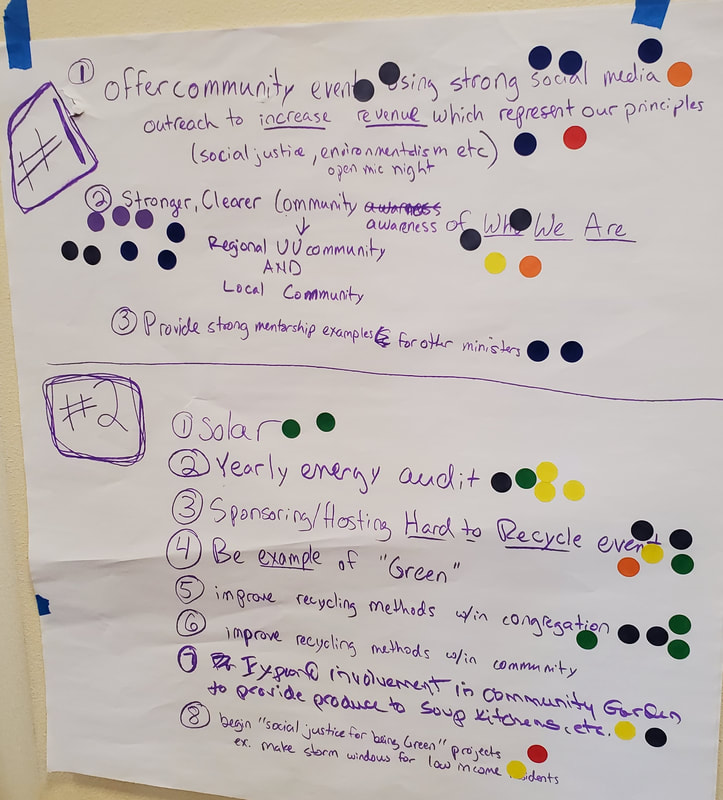 #1
① Offer community event using strong social media
outreach to increase revenue which represent our principles
(social justice, environmentalism etc)
open mic night
② Stronger, Clearer Community awarness
awareness of Who We Are
Regional UU community
AND
Local Community
③ Provide strong mentorship examples for other ministers
#2
① Solar
② Yearly energy audit
③ Sponsoring/Hosting Hard to Recycle event
④ Be example of "Green"
⑤ improve recycling methods w/in congregation
⑥ improve recycling methods w/in community
⑦ Expand involvement in Community Garden
to provide produce to Soup kitchens, etc.
⑧ begin "social justice for being Green" projects
ex. make storm windows for low income residents